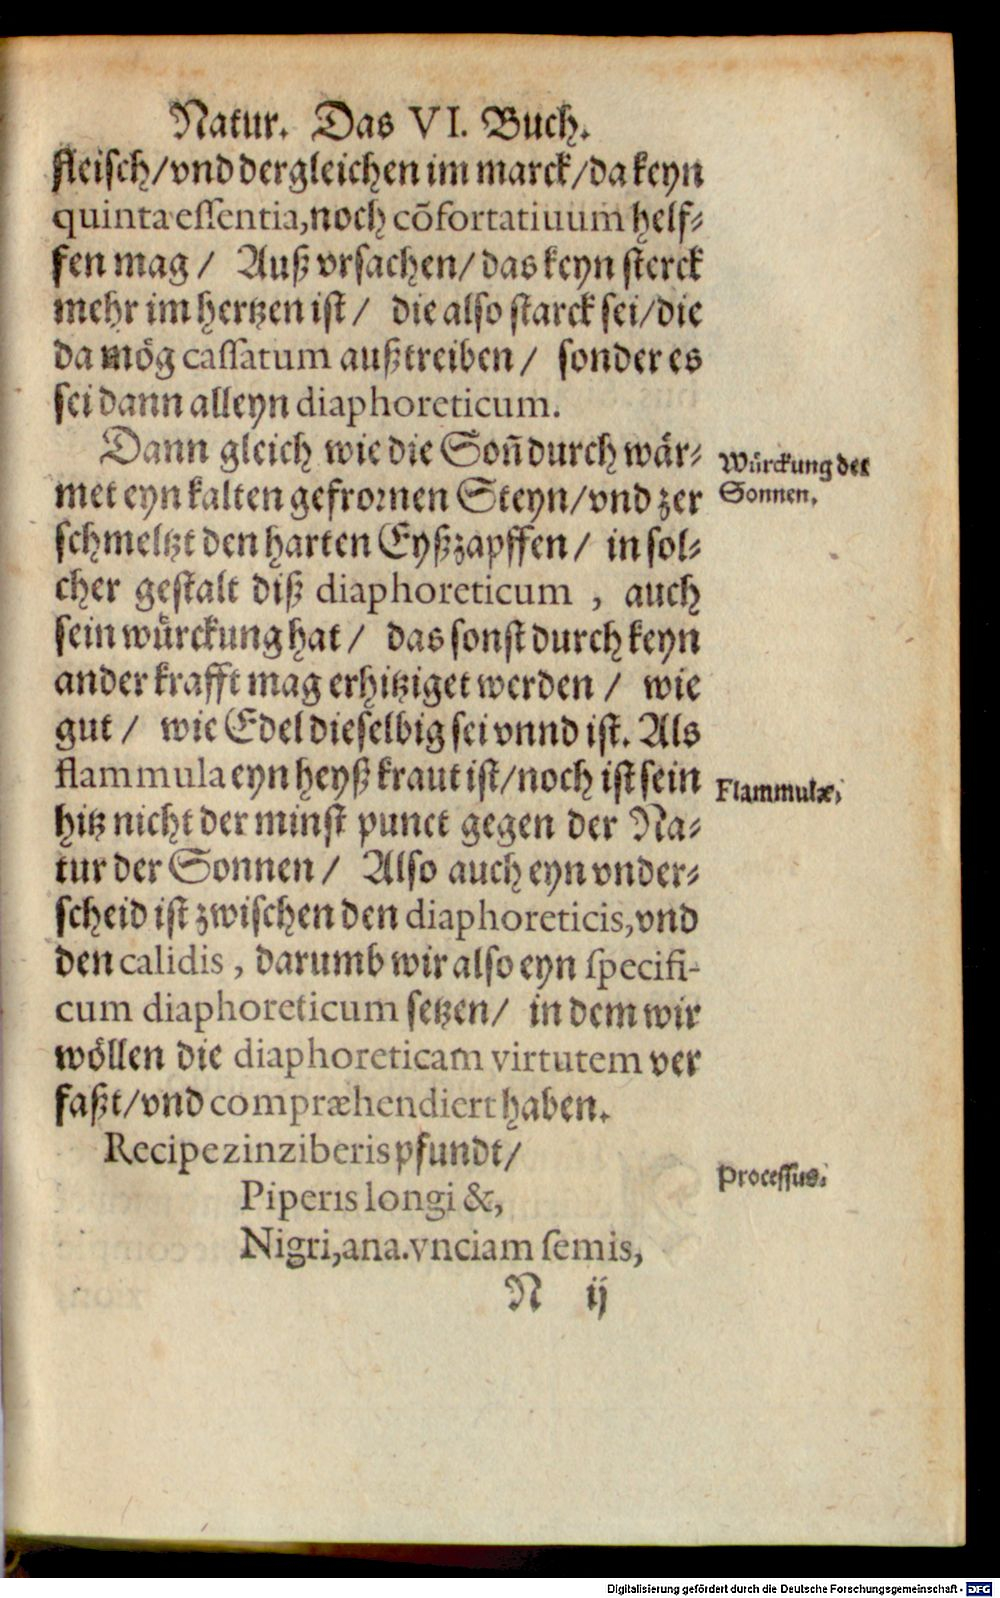 Natur. Das VI. Buch.
fleisch/vnd dergleichen im marck/da keyn
quinta essentia, noch cõfortatiuum helf⸗
fen mag / Auß vrsachen/ das keyn sterck
mehr im hertzen ist / die also starck sei/die
da mög cassatum außtreiben / sonder es
sei dann alleyn diaphoreticum.
Dann gleich wie die Soñ durch wär⸗
met eyn kalten gefrornen Steyn/vnd zer
schmeltzt den harten Eyßzapffen / in sol⸗
cher gestalt diß diaphoreticum , auch
sein würckung hat / das sonst durch keyn
ander krafft mag erhitziget werden / wie
gut / wie Edel dieselbig sei vnnd ist. Als
flammula eyn heyß kraut ist/noch ist sein
hitz nicht der minst punct gegen der Na⸗
tur der Sonnen / Also auch eyn vnder⸗
scheid ist zwischen den diaphoreticis, vnd
den calidis , darumb wir also eyn specifi-
cum diaphoreticum setzen/ in dem wir
wöllen die diaphoreticam virtutem ver
faßt/vnd compræhendiert haben.
Recipe zinziberis pfundt/
Piperis longi &,
Nigri, ana. vnciam semis,
N ij
Würckung der
Sonnen.
Flammulæ.
Processus.
Digitalisierung gefördert durch die Deutsche Forschungsgemeinschaft - DFG